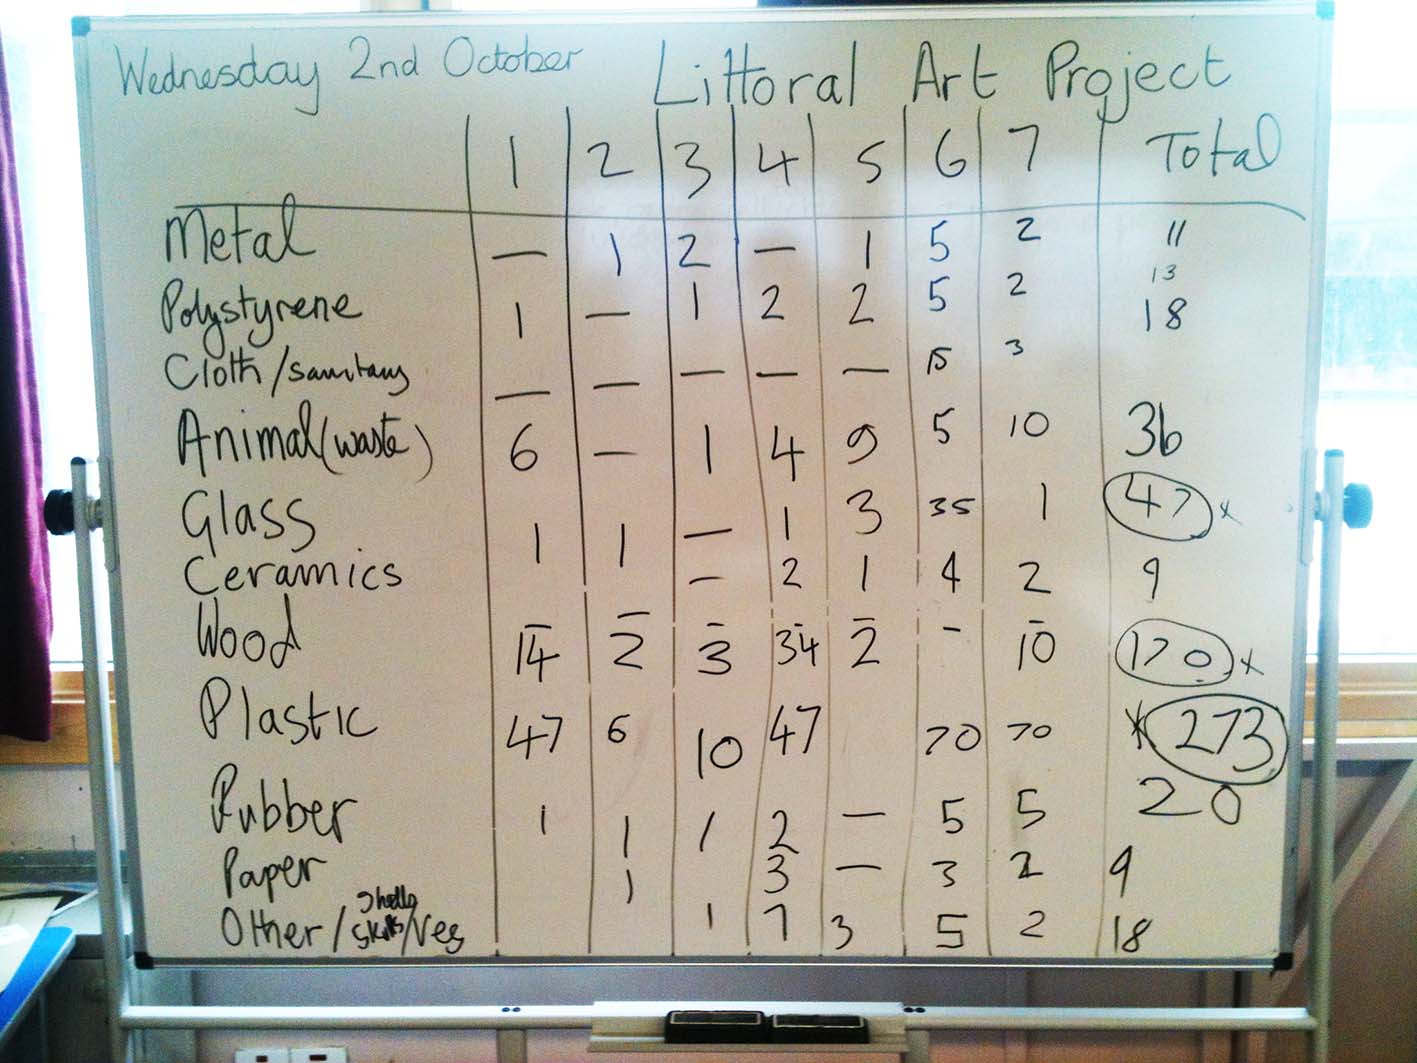 Wednesday 2nd October Littoral Art Project
1 2 3 4 5 6 7 Total
Metal — 1 2 — 1 5 2 11
Polystyrene 1 — 1 2 2 5 2 13
Cloth/sanitary — — — — — 15 3 18
Animal (waste) 6 — 1 4 9 5 10 36
Glass 1 1 — 1 3 35 1 47 x
Ceramics — — 2 1 4 2 9
Wood 14 2 3 34 2 - 10 170 x
Plastic 47 6 10 47 70 70 x 273
Rubber 1 1 1 2 — 5 5 20
Paper 1 3 — 3 2 9
Other/shells/Veg 1 7 3 5 2 18